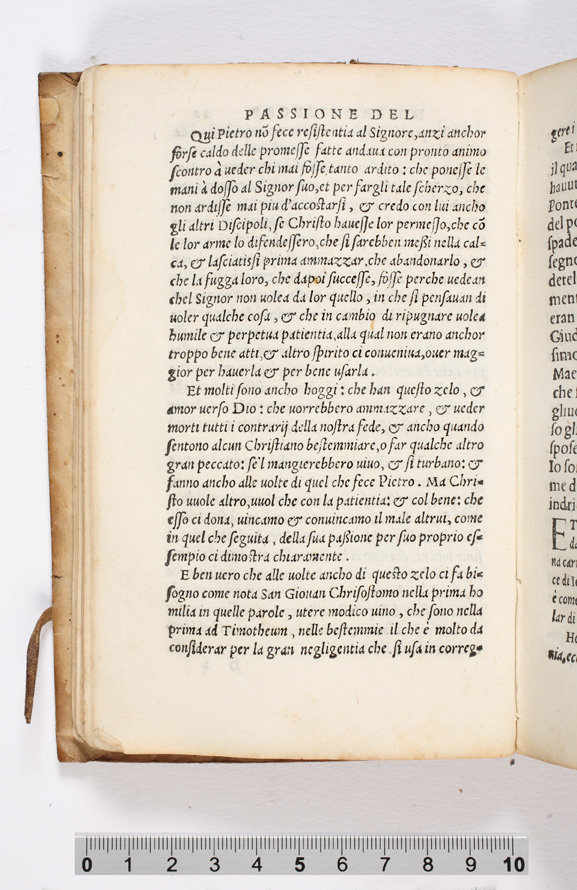 PASSIONE DEL
Qui Pietro nõ fece resistentia al Signore, anzi anchor
forse caldo delle promesse fatte andaua con pronto animo
scontro à ueder chi mai fosse tanto ardito : che ponesse le
mani à dosso al Signor suo, et per fargli tale scherzo, che
non ardisse mai piu d'accostarsi , & credo con lui ancho
gli altri Discipoli, se Christo hauesse lor permesso, che cõ
le lor arme lo difendessero, che si sarebben messi nella cal=
ca, & lasciatissi prima ammazzar, che abandonarlo , &
che la fugga loro, che dapoi successe, fosse perche uedean
chel Signor non uolea da lor quello , in che si pensauan di
uoler qualche cosa , & che in cambio di ripugnare uolea
humile & perpetua patientia, alla qual non erano anchor
troppo bene atti, & altro spirito ci conueniua, ouer mag=
gior per hauerla & per bene usarla .
Et molti sono ancho hoggi : che han questo zelo , &
amor uerso Dio : che uorrebbero ammazzare , & ueder
morti tutti i contrarij della nostra fede, & ancho quando
sentono alcun Christiano bestemmiare, o far qualche altro
gran peccato: se'l mangierebbero uiuo, & si turbano: &
fanno ancho alle uolte di quel che fece Pietro . Ma Chri=
sto uuole altro, uuol che con la patientia: & col bene: che
esso ci dona, uincamo & conuincamo il male altrui, come
in quel che seguita , della sua passione per suo proprio es=
sempio ci dimostra chiaramente .
E ben uero che alle uolte ancho di questo zelo ci fa bi=
sogno come nota San Giouan Chrisostomo nella prima ho
milia in quelle parole , utere modico uino , che sono nella
prima ad Timotheum , nelle bestemmie il che è molto da
considerar per la gran negligentia che si usa in correg=
gere i
Et
il qua
hauu
Ponte
del p
spade
segno
detel
ment
eran
Giud
simo
Mae
che
gliuo
so gl
spose
Io so
me d
indri
ET
da
na car
ce di
è come
lar di
He
nia, ec
0 1 2 3 4 5 6 7 8 9 10